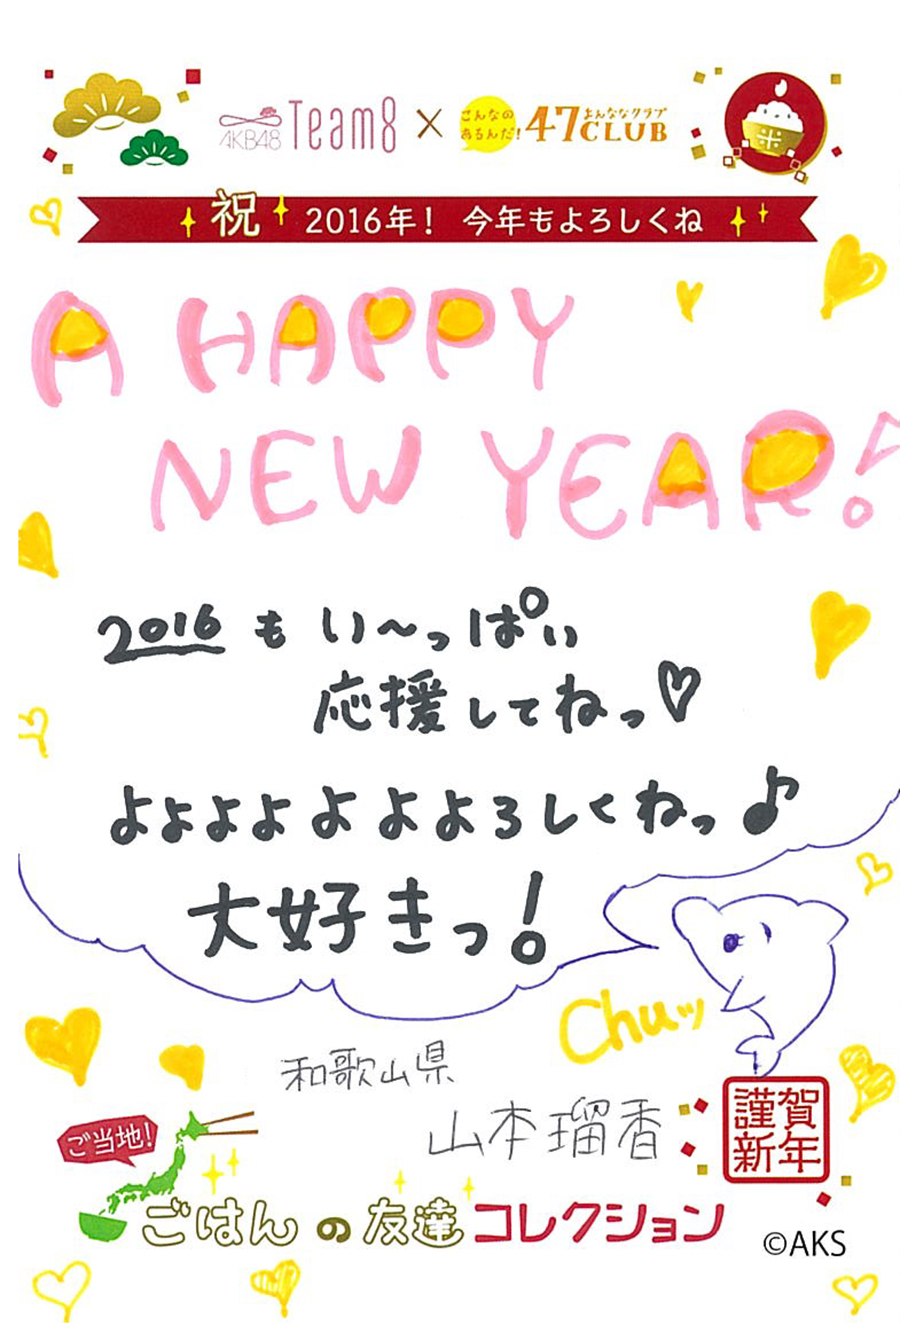 AKB48 Team8 × こんなのあるんだ! 47CLUB よんななクラブ
祝 2016年! 今年もよろしくね
A HAPPY
NEW YEAR!
2016 も い～っぱい
応援してねっ♡
よよよよよよよろしくねっ♪
大好きっ!
Chuッ
和歌山県
山本瑠香
謹賀
新年
米
ご当地!
ごはんの友達コレクション
©AKS